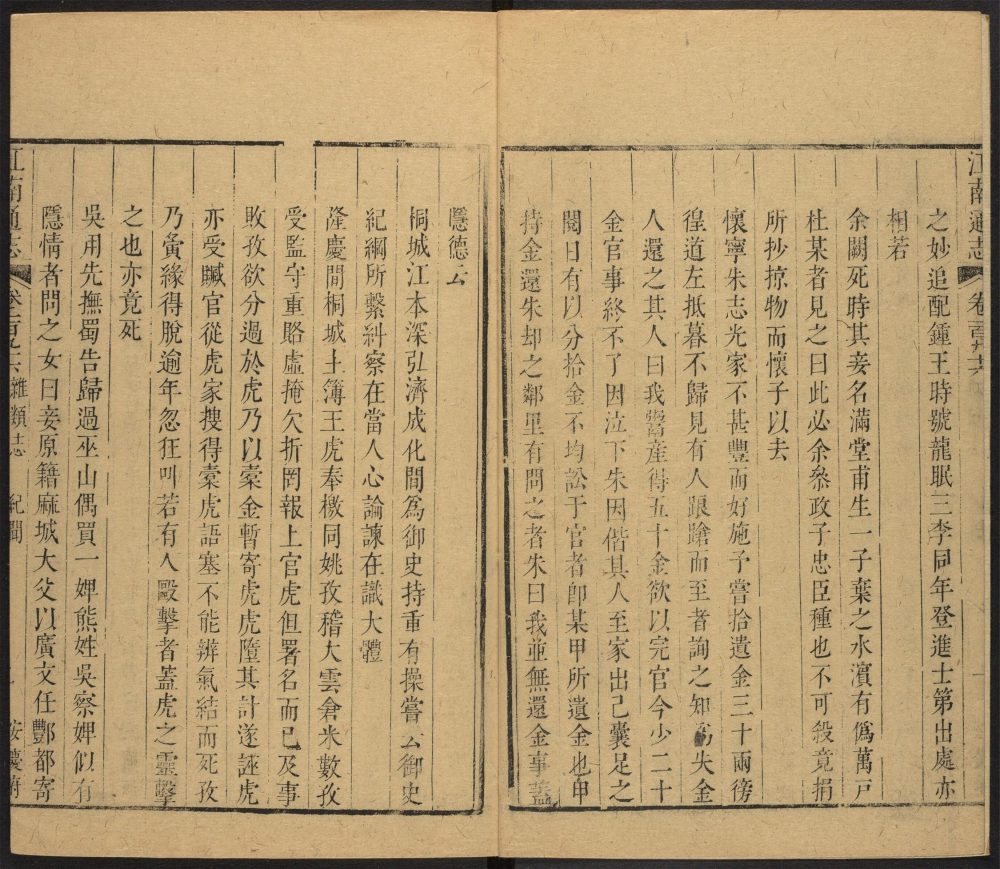 江南通志 卷一百九十六
之妙追配鍾王時號龍眠三李同年登進士第出處亦
相若
余闕死時其妾名滿堂甫生一子棄之水濱有僞萬戸
杜某者見之曰此必余叅政子忠臣種也不可殺竟捐
所抄掠物而懷子以去
懷寧朱志光家不甚豐而好施予嘗拾遺金三十兩徬
徨道左抵暮不歸見有人踉蹌而至者詢之知爲失金
人還之其人曰我鬻産得五十金欲以完官今少二十
金官事終不了因泣下朱因偕其人至家出己囊足之
閱日有以分拾金不均訟于官者卽某甲所遺金也甲
持金還朱却之鄰里有問之者朱曰我並無還金事蓋
隱德云
桐城江本深弘濟成化間爲御史持重有操嘗云御史
紀綱所繫糾察在當人心論諫在識大體
隆慶間桐城主簿王虎奉檄同姚孜稽大雲倉米數孜
受監守重賂虛掩欠折罔報上官虎但署名而已及事
敗孜欲分過於虎乃以橐金暫寄虎虎墮其計遂誣虎
亦受贓官從虎家搜得橐虎語塞不能辨氣結而死孜
乃夤緣得脫逾年忽狂叫若有人毆擊者蓋虎之靈擊
之也亦竟死
吳用先撫蜀告歸過巫山偶買一婢熊姓吳察婢似有
隱情者問之女曰妾原籍麻城大父以廣文任酆都寄
江南通志 雜類志 紀聞 安慶府